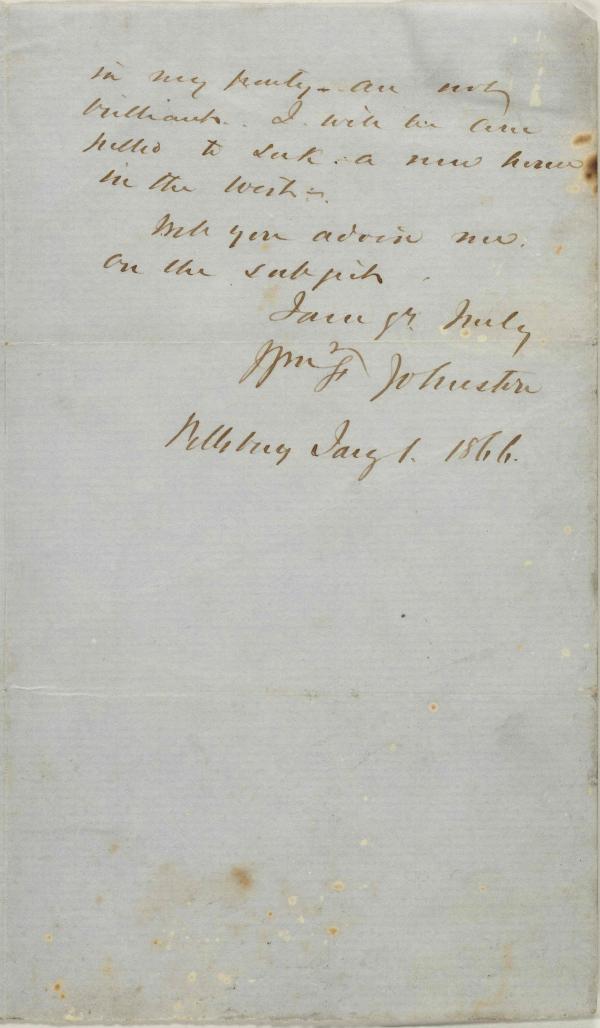 in my party - are not
brilliant. I will be com
pelled to seek a new home
in the West -
Will you advise me
on the subject
I am yr. truly
Wm F Johnston
Pittsburg Jany 1. 1866.